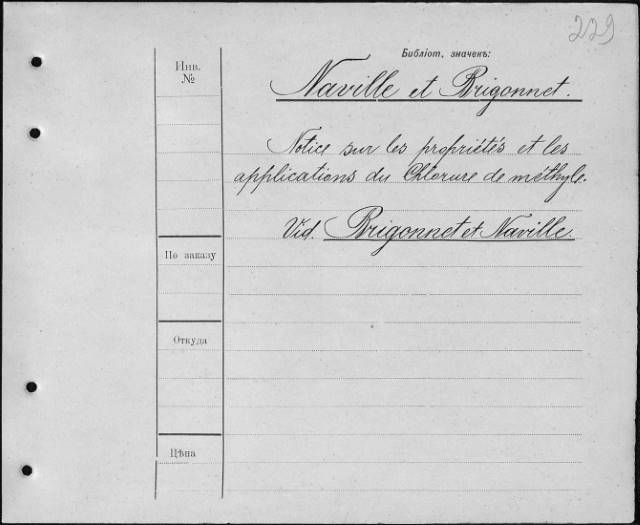 229
Библіот, значекъ:
Инв.
№
Naville et Brigonnet.
Notice sur les propriétés et les
applications du Chlorure de méthyle.
Vid. Brigonnet et Naville.
По заказу
Откуда
Цѣна